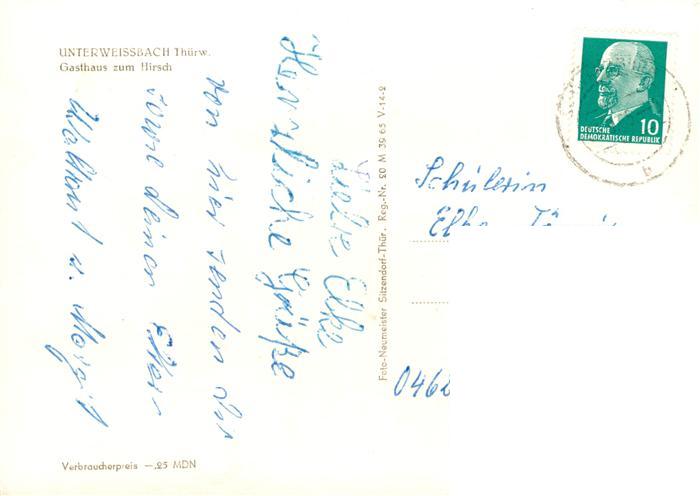 UNTERWEISSBACH Thürw.
Gasthaus zum Hirsch
Liebe Elke
Herzliche Grüße
von hier senden dir
sowie deinen Eltern
Waltraut u. Margit
Verbraucherpreis —,25 MDN
Foto-Neumeister Sitzendorf-Thür. Reg.-Nr. 20 M 39 65 V-14-2
10
DEUTSCHE
DEMOKRATISCHE REPUBLIK
Schülerin
Elke
0462